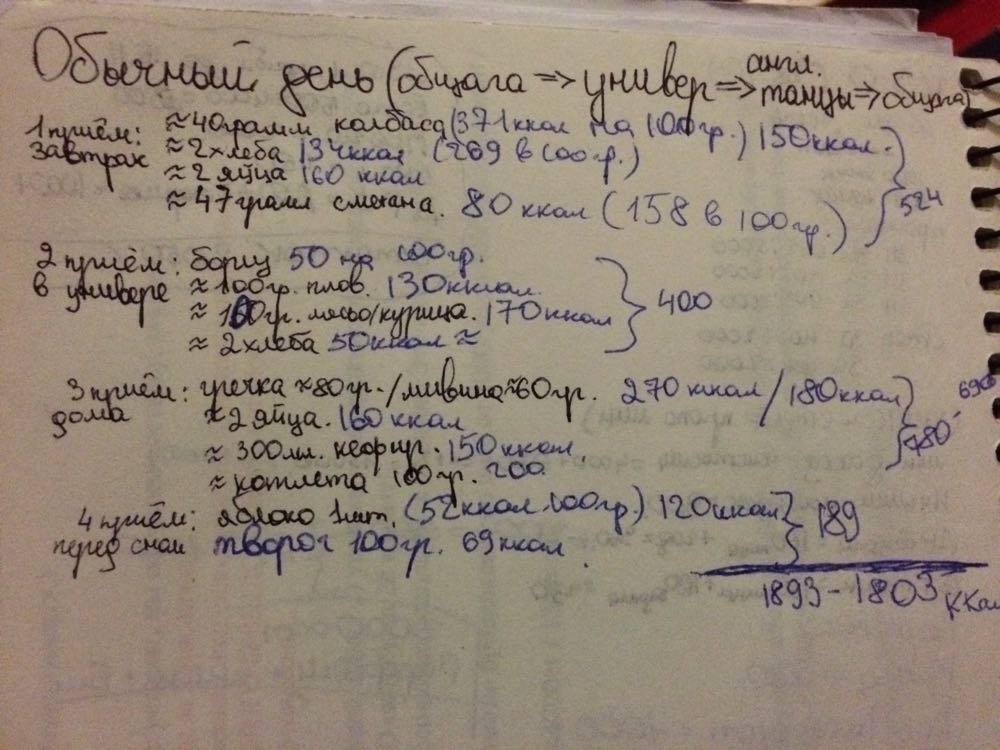 Обычный день (общага => универ => англ. танцы => общага)
1 приём: ≈ 40грамм колбаса (371 ккал на 100гр.) 150ккал.
Завтрак ≈ 2 хлеба 134ккал (269 в 100гр.)
≈ 2 яйца 160 ккал
≈ 47грамм сметана. 80 ккал (158 в 100гр.)
524
2 приём: борщ 50 на 100гр.
в универе ≈ 100гр. плов. 130ккал.
≈ 100гр. мясо/курица. 170ккал
≈ 2хлеба 50ккал ≈
400
3 приём: гречка ≈80гр./ливвина≈60гр. 270 ккал/180ккал
дома ≈ 2 яйца. 160 ккал
≈ 300мл. кефир. 150ккал
≈ котлета 100гр. 200
690
780
4 приём: яблоко 1шт. (52ккал 100гр.) 120ккал
перед сном творог 100гр. 69ккал
189
1893 - 1803 ККал